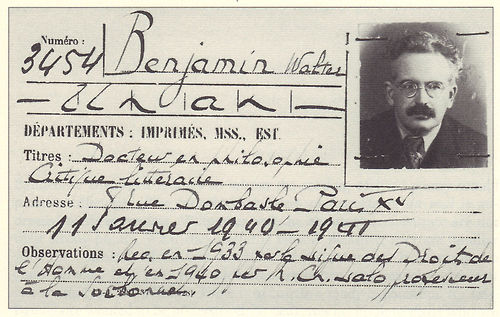 Numéro :
3454 Benjamin Walter
— Un an —
DÉPARTEMENTS : IMPRIMÉS, MSS., EST.
Titres : Docteur en philosophie
Critique litteraire
Adresse : rue Dombasle Paris XV
11 Janvier 1940 - 1941
Observations : Rec. en 1933 par la Ligue des Droits de
l'Homme et en 1940 par M. Ch. Lalo professeur
à la Sorbonne.